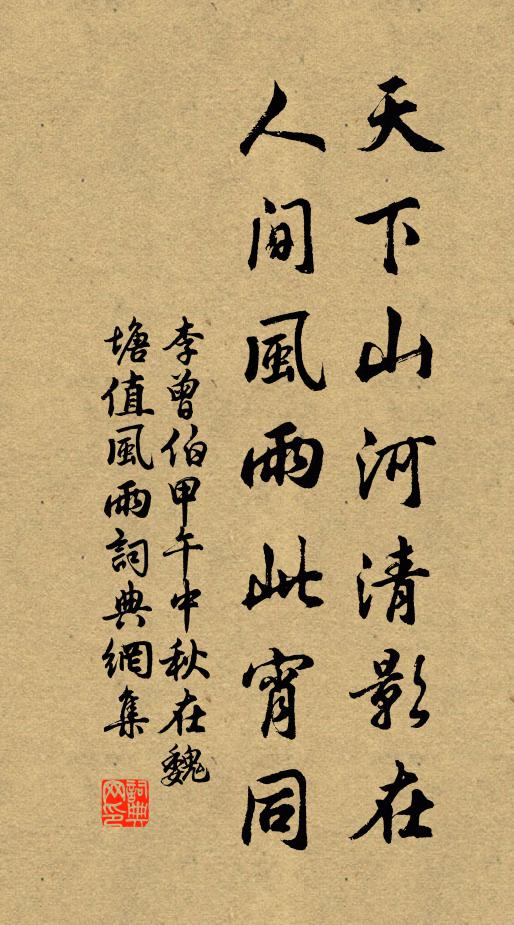 天下山河清影在
人間風雨此宵同
李曾伯甲午中秋在魏
塘值風雨詞典網集
詞典網印